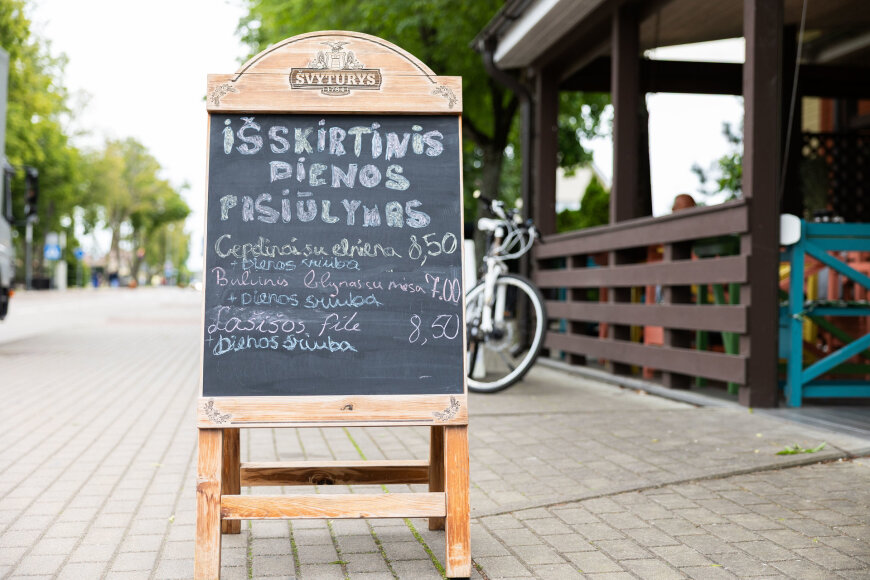 ŠVYTURYS
1784
IŠSKIRTINIS
DIENOS
PASIŪLYMAS
Cepelinai su elniena 8,50
+ dienos sriuba
Bulvinis blynas su mėsa 7.00
+ dienos sriuba
Lašišos filė 8,50
+ dienos sriuba